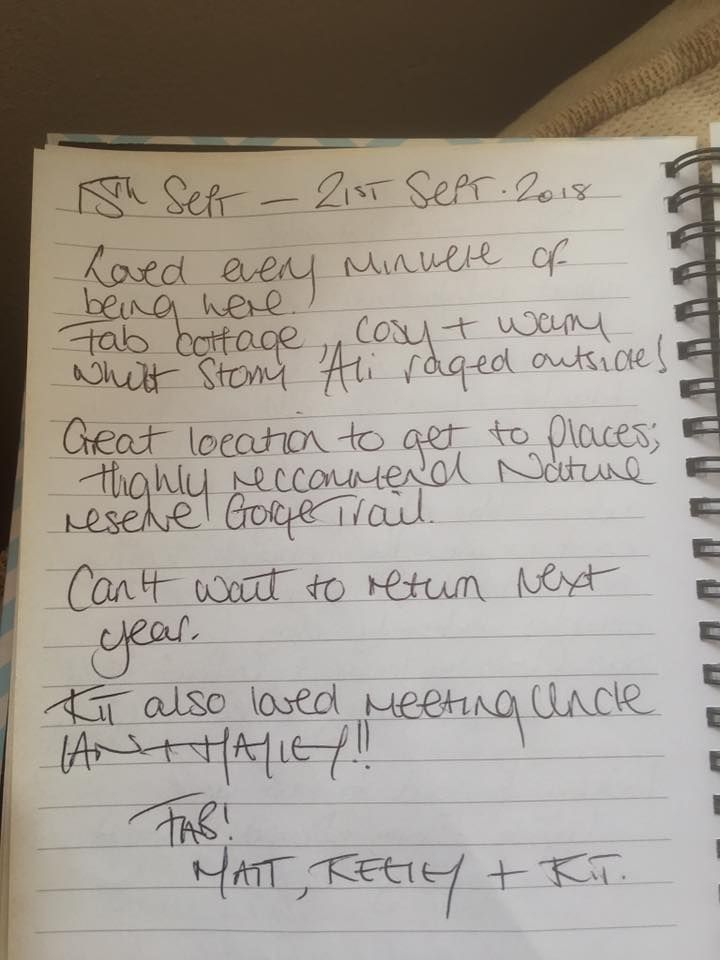 15th Sept - 21st Sept. 2018
Loved every minuete of
being here.
Fab cottage, cosy + warm
whilst Storm 'Ali raged outside!
Great location to get to places;
Highly reccommend Nature
reserve Gorge Trail.
Can't wait to return next
year.
Kit also loved meeting Uncle
IAN + HAYLEY!!
FAB!
MATT, KEELEY + KIT.